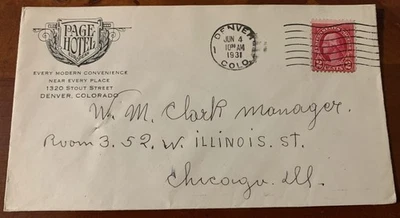 PAGE
HOTEL
EVERY MODERN CONVENIENCE
NEAR EVERY PLACE
1320 STOUT STREET
DENVER, COLORADO
DENVER
JUN 4
AM
1931
COLO.
2 CENTS 2
W. M. Clark manager.
Room 3. 52. W. ILLINOIS. ST.
Chicago. Ill.